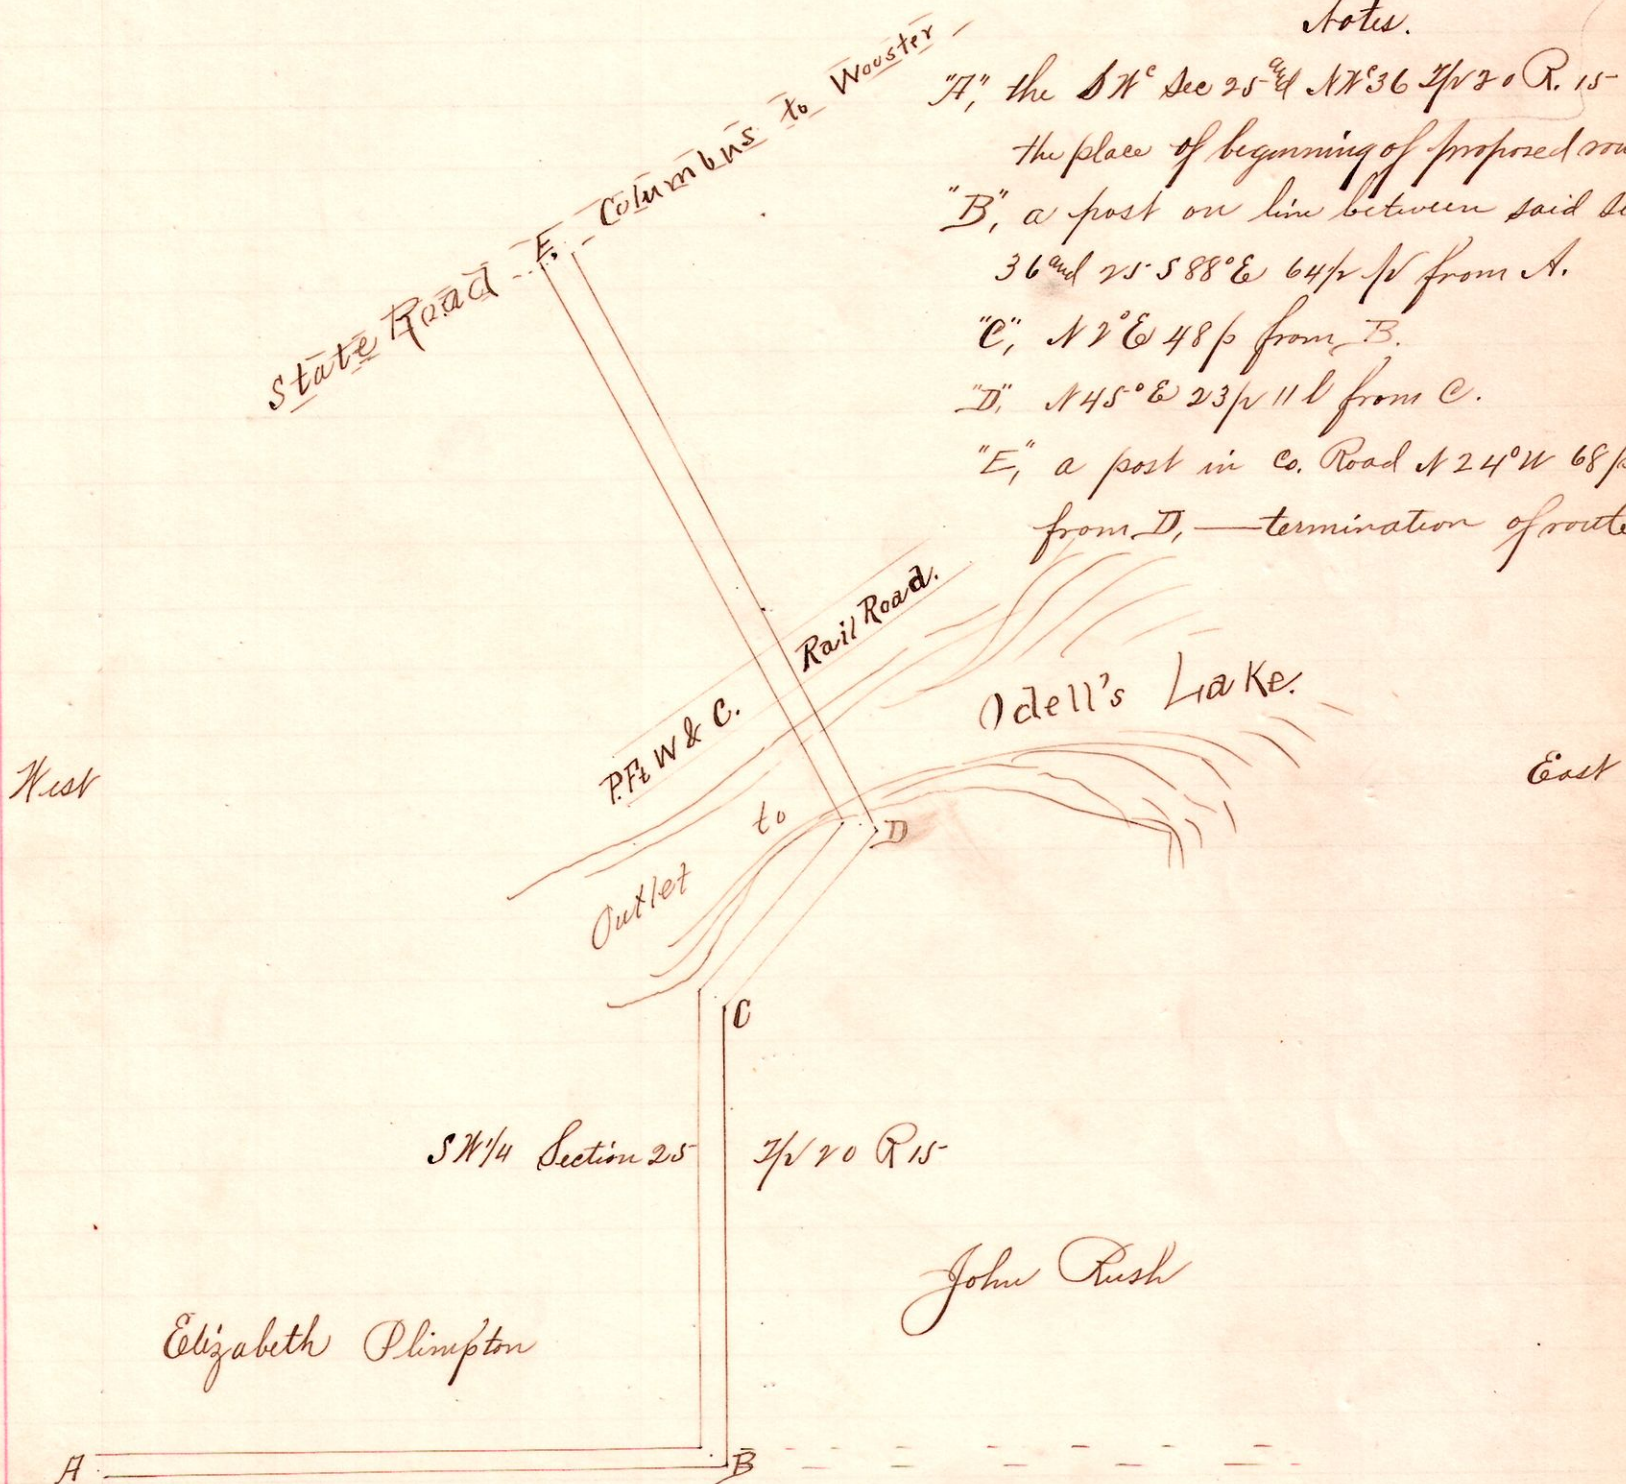 Notes.
"A", the SWc Sec 25 and NWc 36 Tp 20 R. 15
the place of beginning of proposed
"B", a post on line between said
36 and 25 S 88° E 64 p from A.
"C", N 2° E 48 p from B.
"D", N 45° E 23 p 11 l from C.
"E", a post in Co. Road N 24° W 68 p
from D, — termination of route
State Road E Columbus to Wooster
P. Ft W & C. Rail Road.
Odell's Lake.
West
East
Outlet to
D
C
SW 1/4 Section 25 Tp 20 R 15
John Rush
Elizabeth Plimpton
A
B